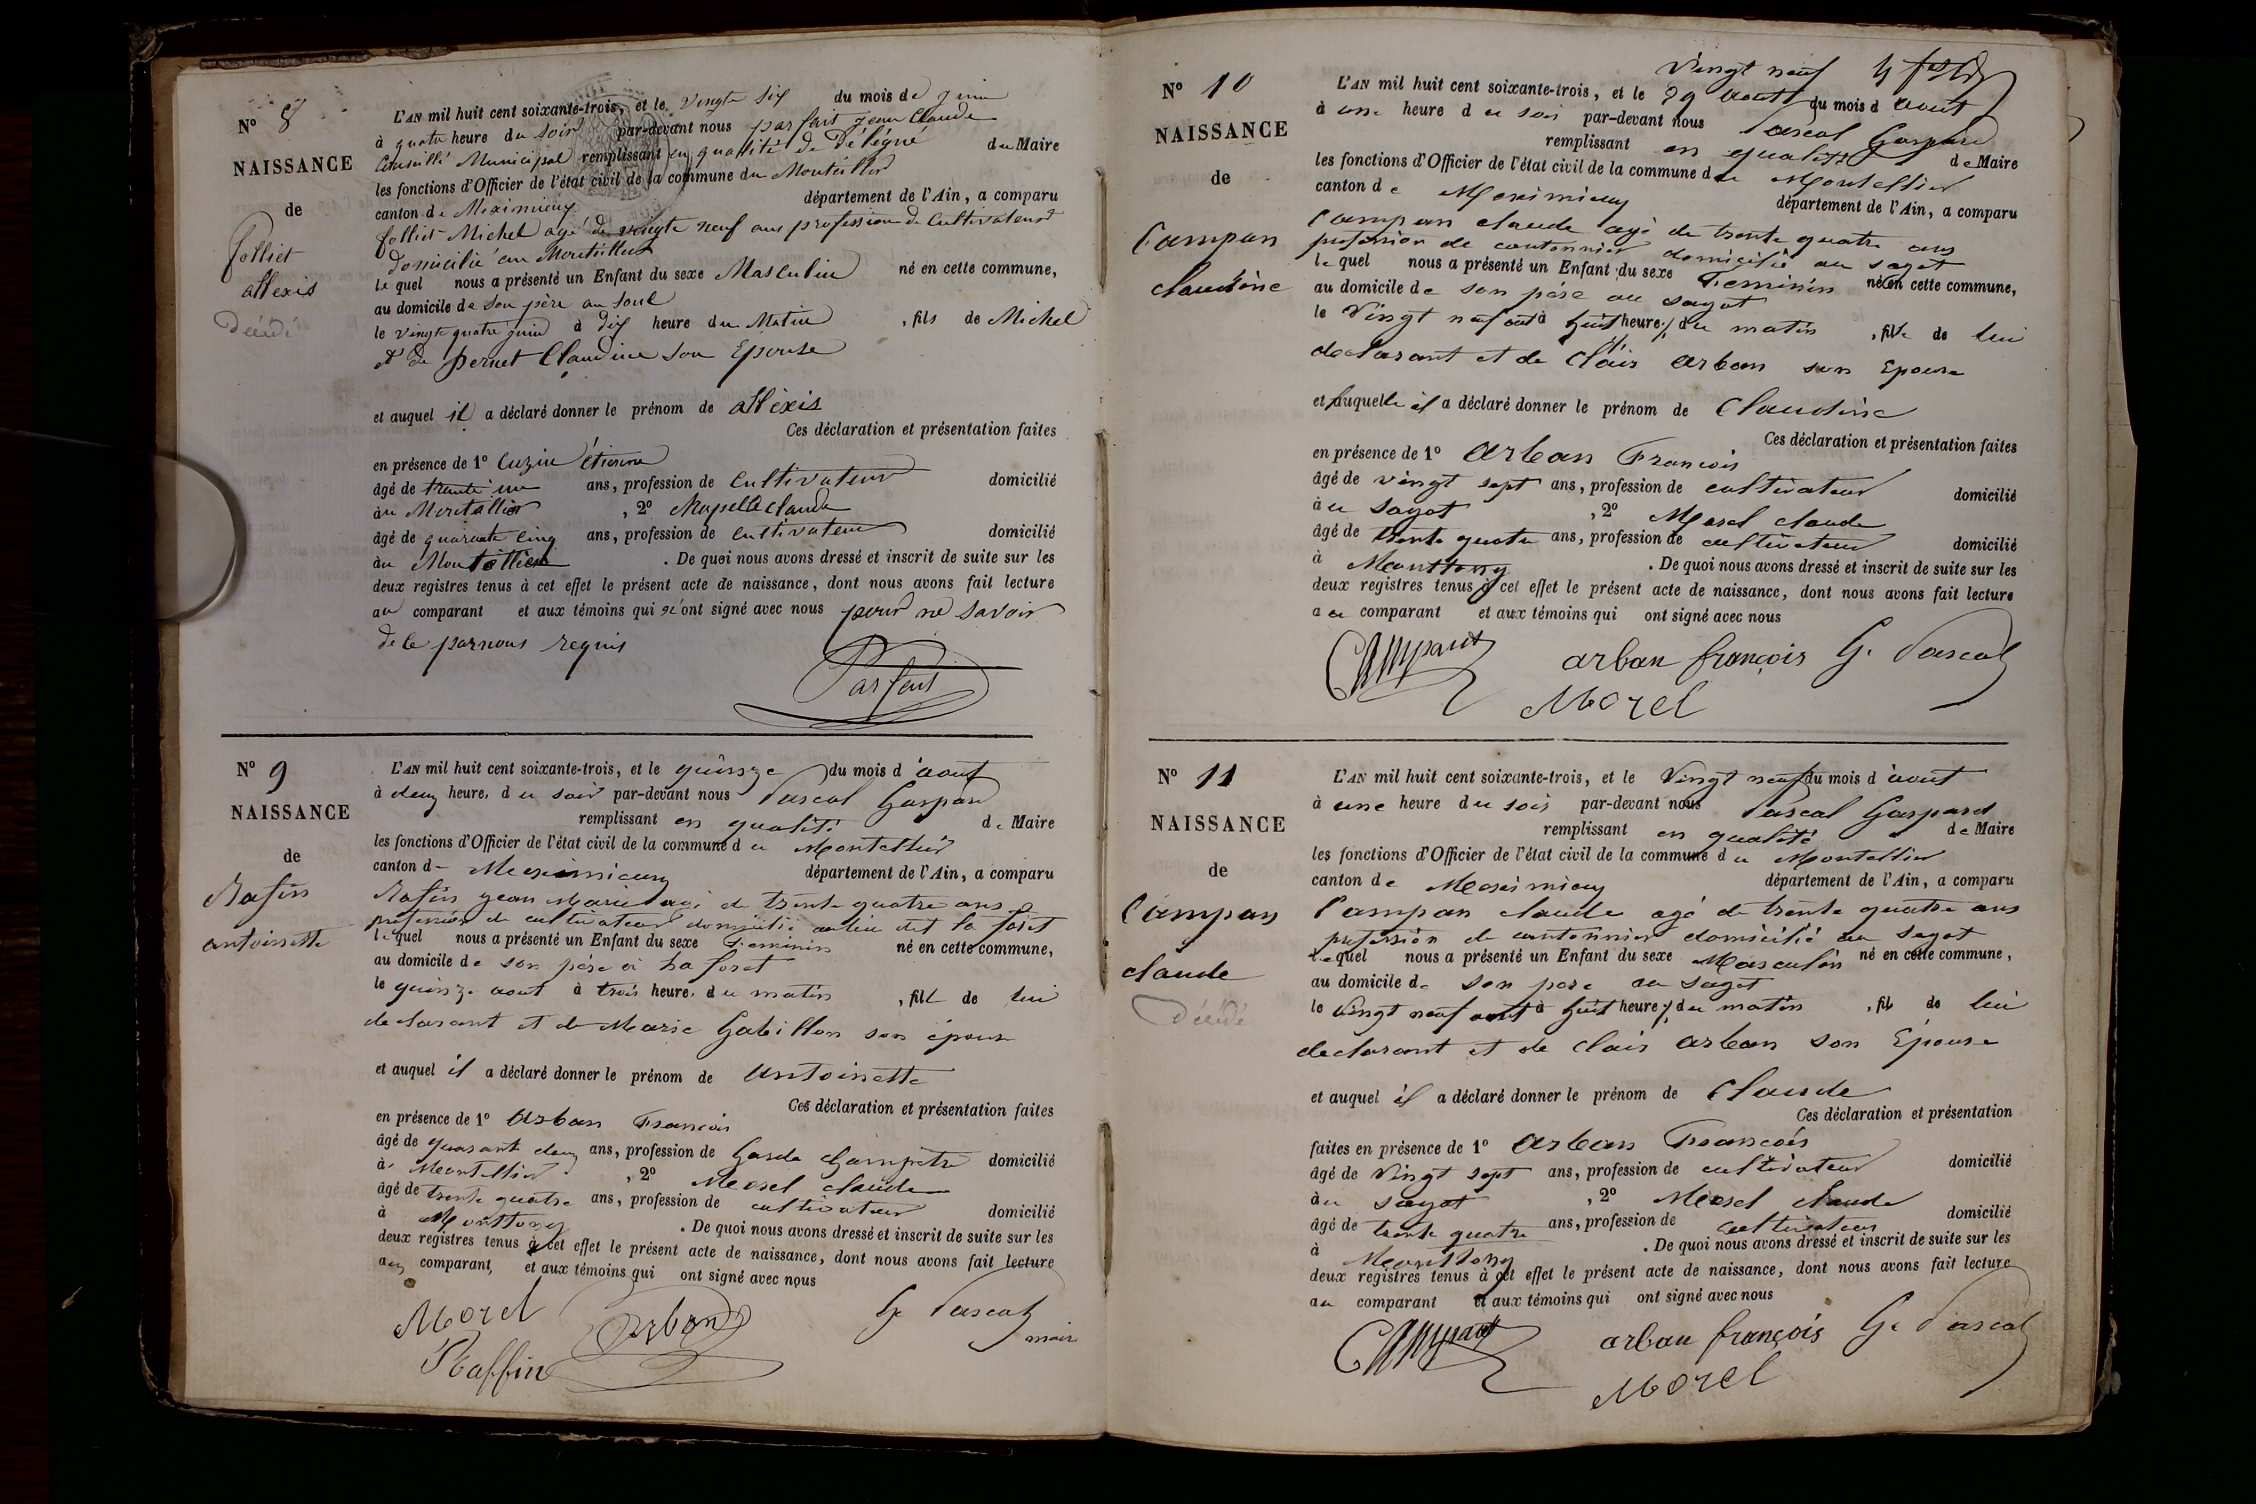 N° 8
NAISSANCE
de
folliet
allexis
Décédé
L'AN mil huit cent soixante-trois, et le vingte six du mois de juin
à quatre heure du soir par-devant nous parfait jean Claude
Conseillé Municipal remplissant en qualité de Délégué du Maire
les fonctions d'Officier de l'état civil de la commune du Montellier
canton de Meximieux département de l'Ain, a comparu
folliet Michel agé de vingte neuf ans profession de Cultivateur
domicilié au Montellier
le quel nous a présenté un Enfant du sexe Masculin né en cette commune,
au domicile de son père au
le vingte quatre juin à dix heure du Matin , fils de Michel
et de pernet Claudine son Epouse
et auquel il a déclaré donner le prénom de allexis
Ces déclaration et présentation faites
en présence de 1° Cuzin étienne
âgé de trente une ans, profession de Cultivateur domicilié
au Montellier , 2° Chapella Claude
âgé de quarante cinq ans, profession de Cultivateur domicilié
au Montellier . De quoi nous avons dressé et inscrit de suite sur les
deux registres tenus à cet effet le présent acte de naissance, dont nous avons fait lecture
au comparant et aux témoins qui n'ont signé avec nous pour ne savoir
de le par nous requis
Parfait
N° 9
NAISSANCE
de
Rafin
antoinette
L'AN mil huit cent soixante-trois, et le quinze du mois d'aout
à deux heure, du soir par-devant nous Pascal Gaspard
remplissant en qualité de Maire
les fonctions d'Officier de l'état civil de la commune du Montellier
canton de Meximieux département de l'Ain, a comparu
Rafin jean Marie agé de trente quatre ans
profession de cultivateur domicilié au lieu dit la foret
le quel nous a présenté un Enfant du sexe Feminin né en cette commune,
au domicile de son père à La foret
le quinze aout à trois heure, du matin , fille de lui
declarant et de Marie Gabillon son épouse
et auquel il a déclaré donner le prénom de antoinette
Ces déclaration et présentation faites
en présence de 1° Arban François
âgé de quarant deux ans, profession de Garde Champetre domicilié
à Montellier , 2° Morel claude
âgé de trente quatre ans, profession de cultivateur domicilié
à Monttony . De quoi nous avons dressé et inscrit de suite sur les
deux registres tenus à cet effet le présent acte de naissance, dont nous avons fait lecture
au comparant, et aux témoins qui ont signé avec nous
Morel Arban G. Pascal
maire
Raffin
N° 10
NAISSANCE
de
Campan
claudine
Vingt neuf
L'AN mil huit cent soixante-trois, et le 29 aout du mois d aout
à une heure du soir par-devant nous Pascal Gaspard
remplissant en qualité de Maire
les fonctions d'Officier de l'état civil de la commune du Montellier
canton de Meximieux département de l'Ain, a comparu
Campan claude agé de trente quatre ans
profession de cantonnier domicilié au sayet
le quel nous a présenté un Enfant du sexe Feminin né en cette commune,
au domicile de son père au sayet
le Vingt neuf out à huit heure du matin , fille de lui
declarant et de Clair Arban son Epouse
et auquelle il a déclaré donner le prénom de Claudine
Ces déclaration et présentation faites
en présence de 1° Arban François
âgé de vingt sept ans, profession de cultivateur domicilié
au sayet , 2° Morel claude
âgé de trente quatre ans, profession de cultivateur domicilié
à Monttony . De quoi nous avons dressé et inscrit de suite sur les
deux registres tenus à cet effet le présent acte de naissance, dont nous avons fait lecture
au comparant et aux témoins qui ont signé avec nous
Campant arban françois G. Pascal
Morel
N° 11
NAISSANCE
de
Campan
claude
Décédé
L'AN mil huit cent soixante-trois, et le Vingt neuf du mois d'aout
à une heure du soir par-devant nous Pascal Gaspard
remplissant en qualité de Maire
les fonctions d'Officier de l'état civil de la commune du Montellier
canton de Meximieux département de l'Ain, a comparu
Campan claude agé de trente quatre ans
profession de cantonnier domicilié au sayet
lequel nous a présenté un Enfant du sexe Masculin né en cette commune,
au domicile de son père au sayet
le Vingt neuf aout à huit heure du matin , fils de lui
declarant et de Clair Arban son Épouse
et auquel il a déclaré donner le prénom de Claude
Ces déclaration et présentation
faites en présence de 1° Arban François
âgé de Vingt sept ans, profession de cultivateur domicilié
au sayet , 2° Morel claude
âgé de trente quatre ans, profession de cultivateur domicilié
à Monttony . De quoi nous avons dressé et inscrit de suite sur les
deux registres tenus à cet effet le présent acte de naissance, dont nous avons fait lecture
au comparant et aux témoins qui ont signé avec nous
Campant arban françois G. Pascal
Morel